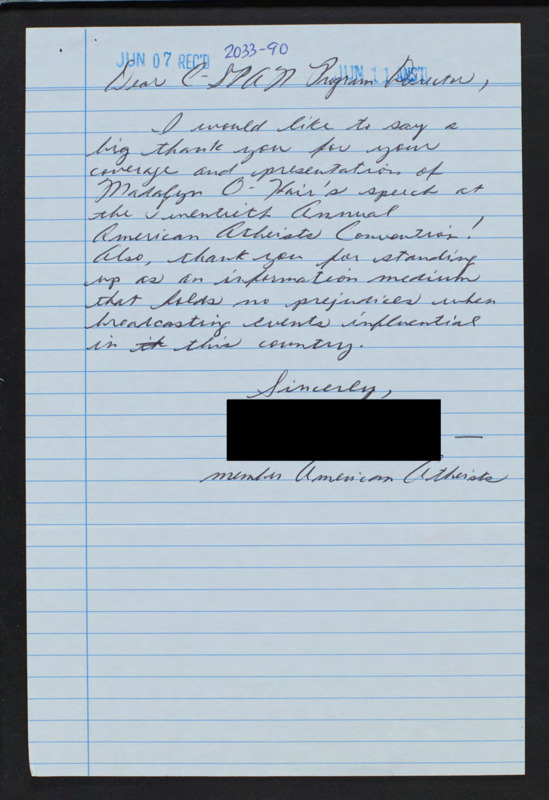 JUN 07 REC'D 2033-90 JUN 11 ANS'D
Dear C-SPAN Program Director,
I would like to say a
big thank you for your
coverage and presentation of
Madalyn O-Hair's speech at
the Twentieth Annual
American Atheists Convention!
Also, thank you for standing
up as an information medium
that holds no prejudices when
broadcasting events influential
in it this country.
Sincerly,
member American Atheists